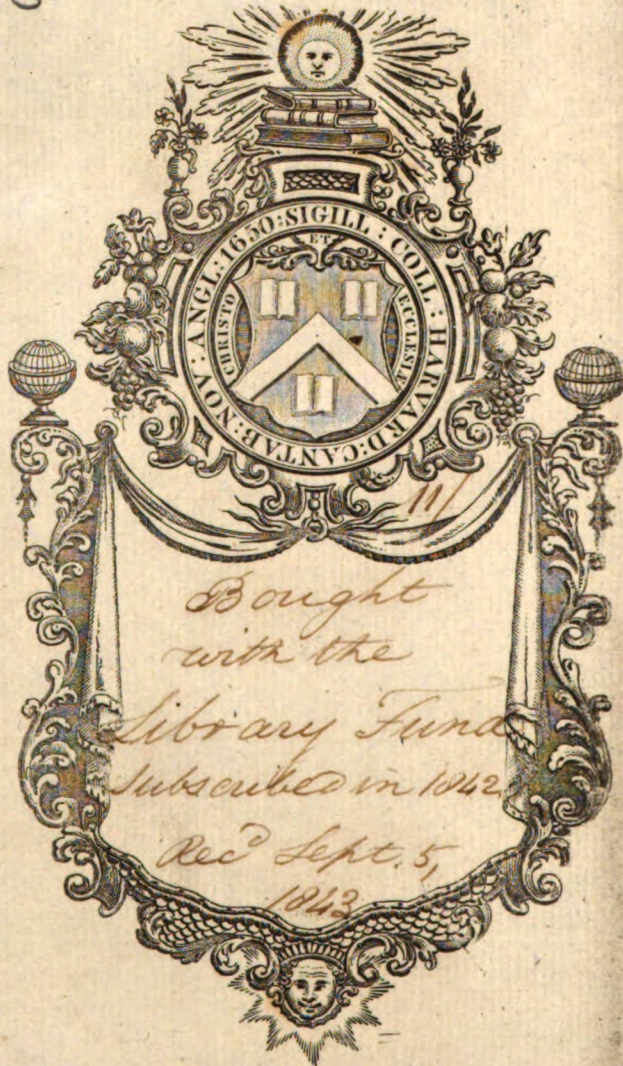 SIGILL : COLL : HARVARD : CANTAB : NOV : ANGL : 1650 :
CHRISTO ET ECCLESIÆ
11/
Bought
with the
Library Fund
Subscribed in 1842
Rec^d Sept. 5,
1843